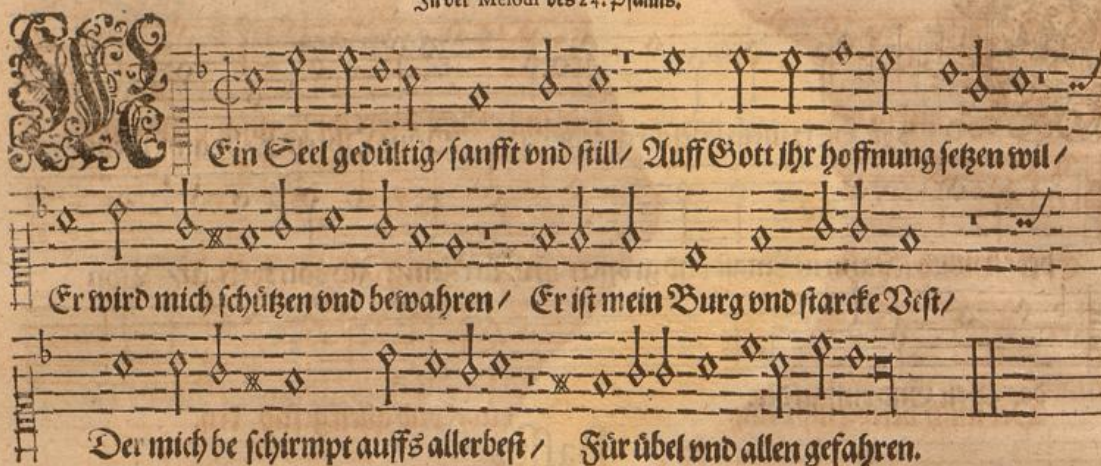 In der Melodi des 24. Psalms.
MEin Seel gedültig/ sanfft vnd still/ Auff Gott jhr hoffnung setzen wil/
Er wird mich schützen vnd bewahren/ Er ist mein Burg vnd starcke Vest/
Der mich be schirmpt auffs allerbest/ Für übel vnd allen gefahren.